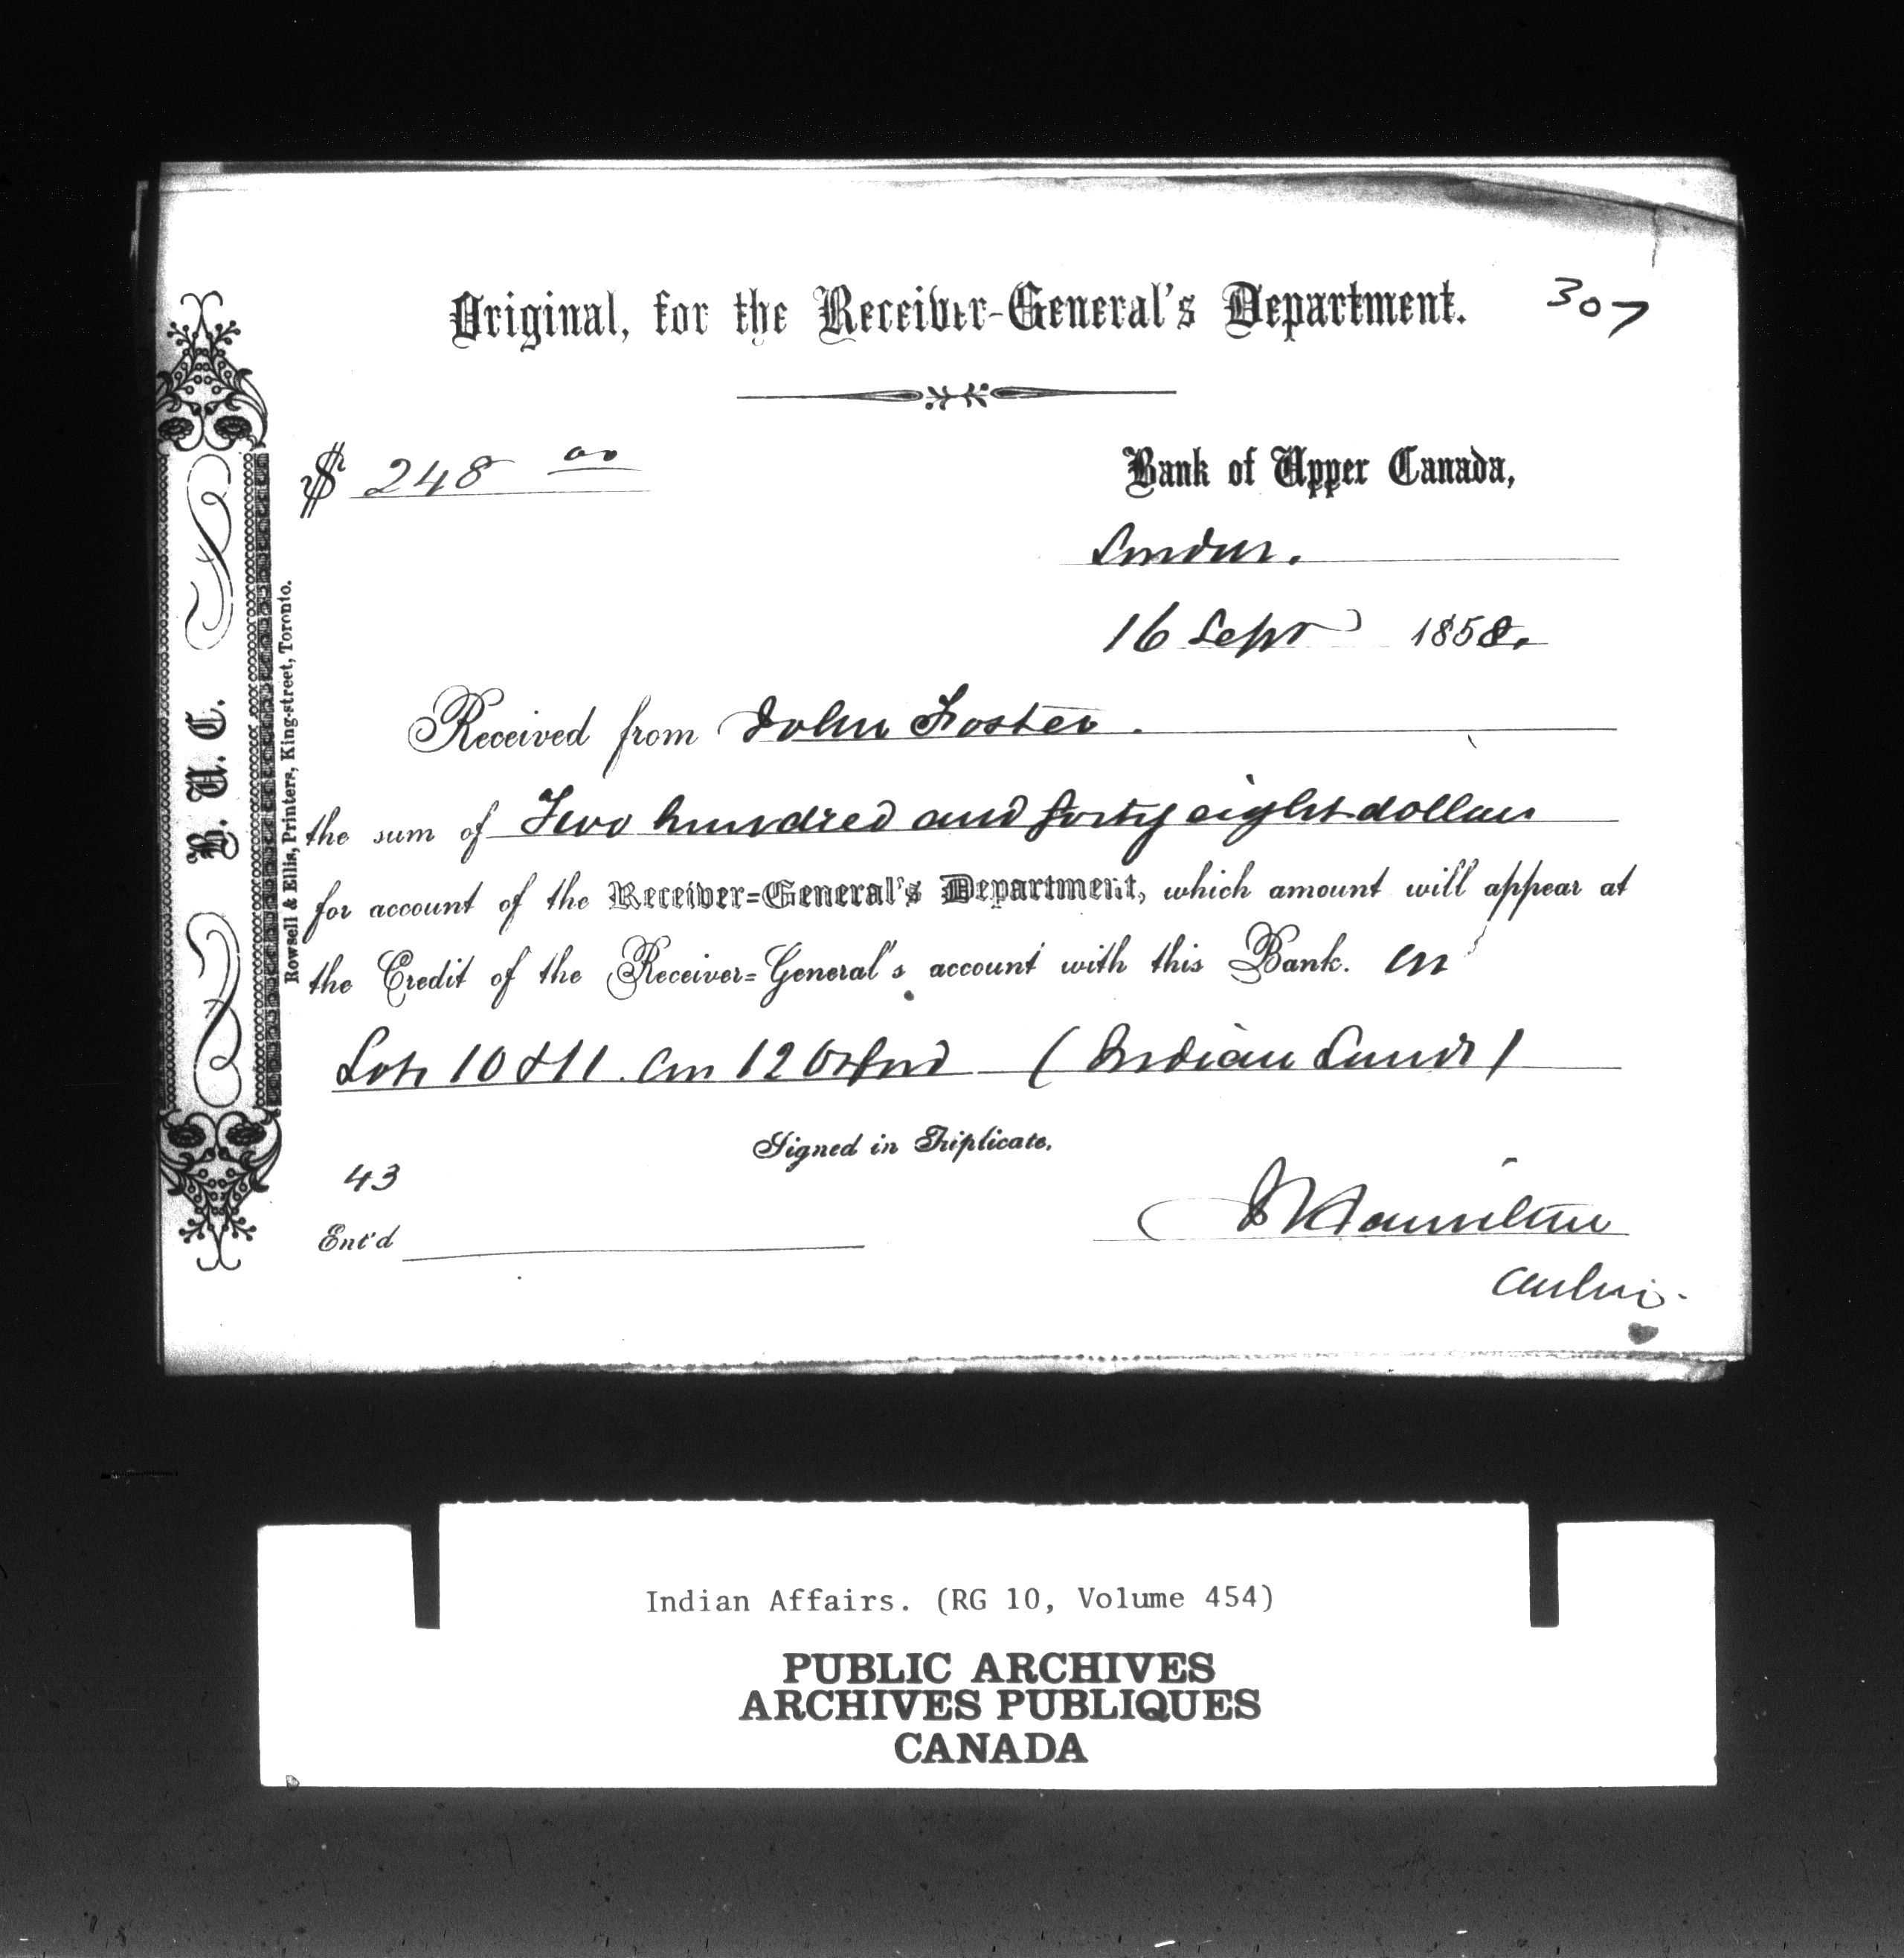 Original, for the Receiver-General's Department. 307
$ 248 00
Bank of Upper Canada,
London.
16 Sept 1858.
Received from John Foster.
the sum of Two hundred and forty eight dollars
for account of the Receiver-General's Department, which amount will appear at
the Credit of the Receiver-General's account with this Bank. on
Lots 10 & 11. Con 12 Oxford (Indian Lands)
Signed in Triplicate.
43
Ent'd
J Hamilton
Cashier.
B. U. C.
Rowsell & Ellis, Printers, King-street, Toronto.
Indian Affairs. (RG 10, Volume 454)
PUBLIC ARCHIVES
ARCHIVES PUBLIQUES
CANADA